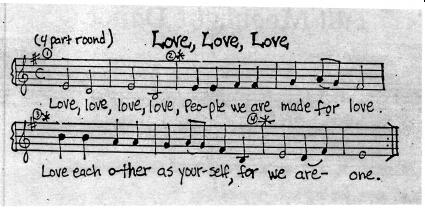 (4 part round) Love, Love, Love
① ②*
Love, love, love, love, Peo-ple we are made for love.
③* ④*
Love each o-ther as your-self, for we are- one.